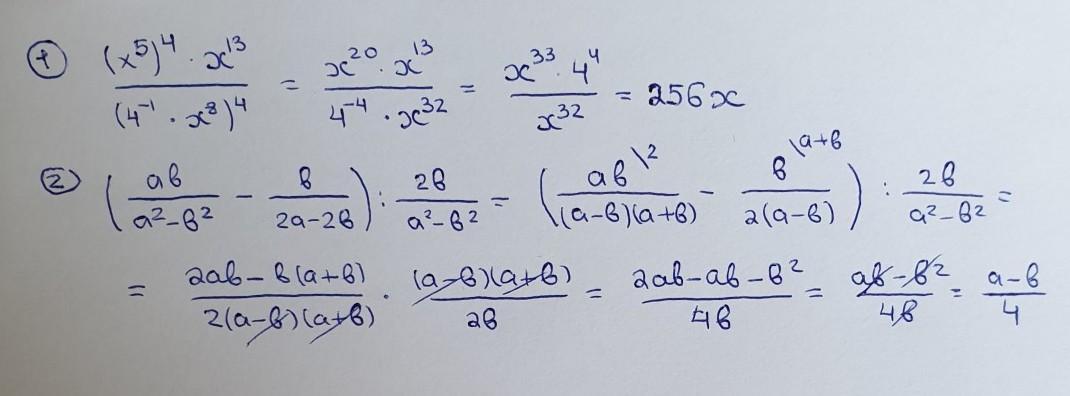 ① (x⁵)⁴ · x¹³ / (4⁻¹ · x⁸)⁴ = x²⁰ · x¹³ / 4⁻⁴ · x³² = x³³ · 4⁴ / x³² = 256x
② (ab / a²-b² - b / 2a-2b) : 2b / a²-b² = (ab \2 / (a-b)(a+b) - b \a+b / 2(a-b)) : 2b / a²-b² =
= 2ab-b(a+b) / 2(a-b)(a+b) · (a-b)(a+b) / 2b = 2ab-ab-b² / 4b = ab-b² / 4b = a-b / 4